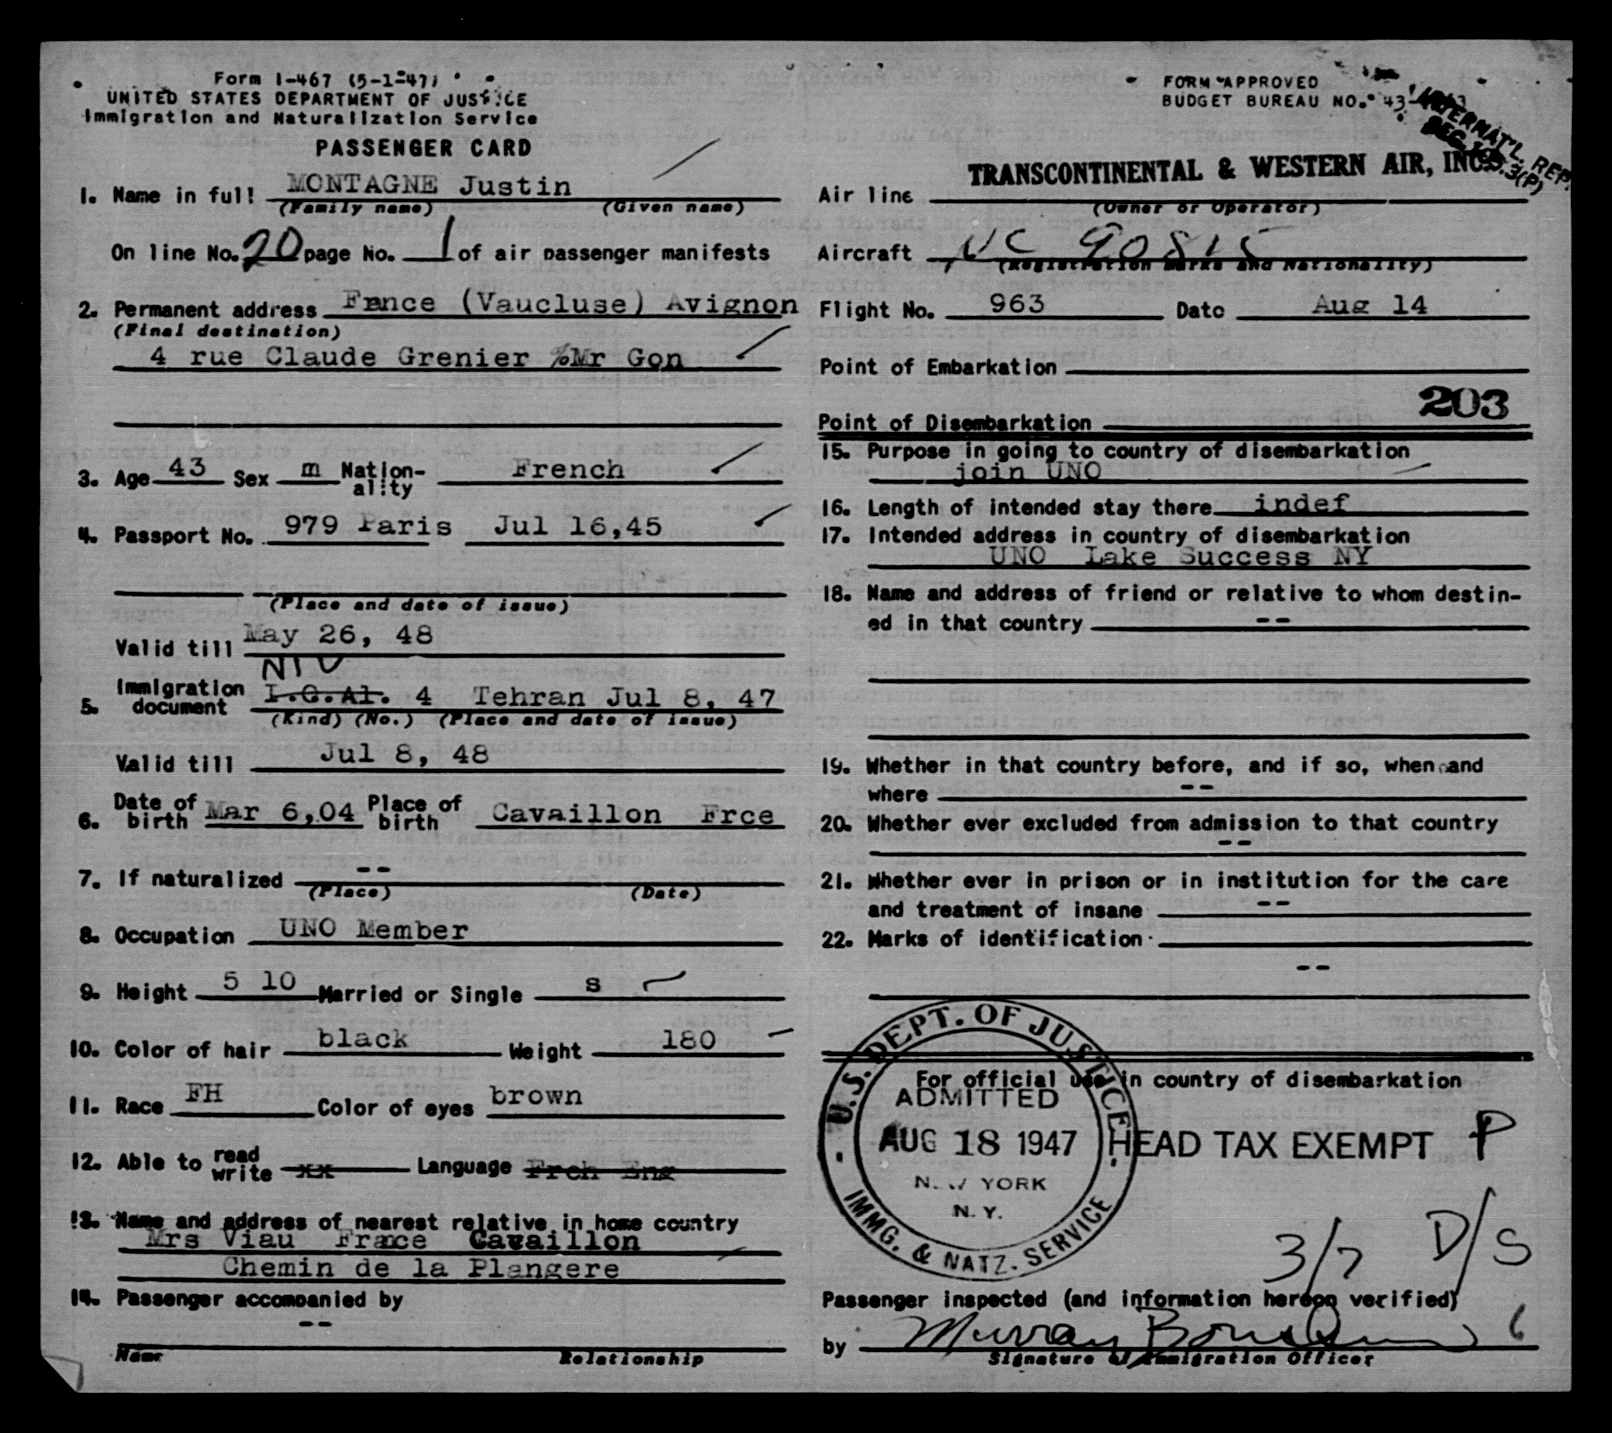 Form I-467 (5-1-47)
UNITED STATES DEPARTMENT OF JUSTICE
Immigration and Naturalization Service
PASSENGER CARD
1. Name in full MONTAGNE Justin
(Family name) (Given name)
On line No. 20 page No. 1 of air passenger manifests
2. Permanent address France (Vaucluse) Avignon
(Final destination)
4 rue Claude Grenier %Mr Gon
3. Age 43 Sex m Nation-ality French
4. Passport No. 979 Paris Jul 16,45
(Place and date of issue)
Valid till May 26, 48
NIV
5. Immigration document I.C.Al. 4 Tehran Jul 8, 47
(Kind) (No.) (Place and date of issue)
Valid till Jul 8, 48
6. Date of birth Mar 6,04 Place of birth Cavaillon Frce
7. If naturalized --
(Place) (Date)
8. Occupation UNO Member
9. Height 5 10 Married or Single s
10. Color of hair black Weight 180
11. Race FH Color of eyes brown
12. Able to read write xx Language Frch Eng
13. Name and address of nearest relative in home country
Mrs Viau France Cavaillon
Chemin de la Plangere
14. Passenger accompanied by
--
Name Relationship
FORM APPROVED
BUDGET BUREAU NO. 43-
INTERNAT'L. REP.
Air line TRANSCONTINENTAL & WESTERN AIR, INC.
(Owner or Operator)
Aircraft NC 90815
(Registration Marks and Nationality)
Flight No. 963 Date Aug 14
Point of Embarkation
203
Point of Disembarkation
15. Purpose in going to country of disembarkation
join UNO
16. Length of intended stay there indef
17. Intended address in country of disembarkation
UNO Lake Success NY
18. Name and address of friend or relative to whom destin-
ed in that country --
19. Whether in that country before, and if so, when and
where --
20. Whether ever excluded from admission to that country
--
21. Whether ever in prison or in institution for the care
and treatment of insane --
22. Marks of identification
--
For official use in country of disembarkation
U.S. DEPT. OF JUSTICE
ADMITTED
AUG 18 1947
NEW YORK
N. Y.
IMMG. & NATZ. SERVICE
HEAD TAX EXEMPT P
3/7 D/S
Passenger inspected (and information hereon verified)
by Murray 6
Signature of Immigration Officer